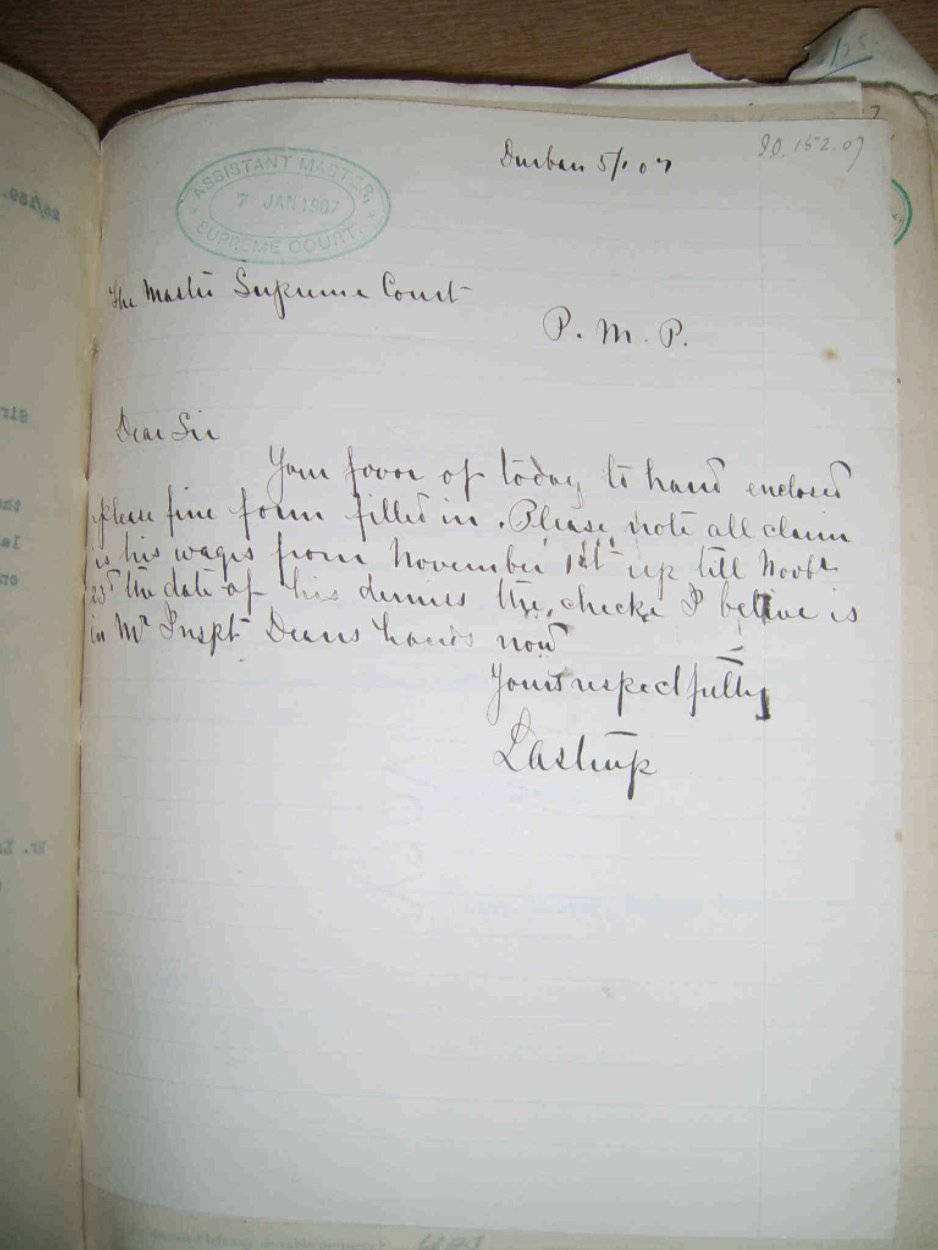 Durban 5/1 07
90.152.07
ASSISTANT MASTER,
7 JAN 1907
SUPREME COURT.
The Master Supreme Court
P. M. P.
Dear Sir
Your favor of today to hand enclosed
please fine form filled in. Please note all claim
is his wages from November 1st up till Novbr
23rd the date of his demies the checke I beleive is
in Mr Inspt Deans hands now
Yours respectfully
Lastrup